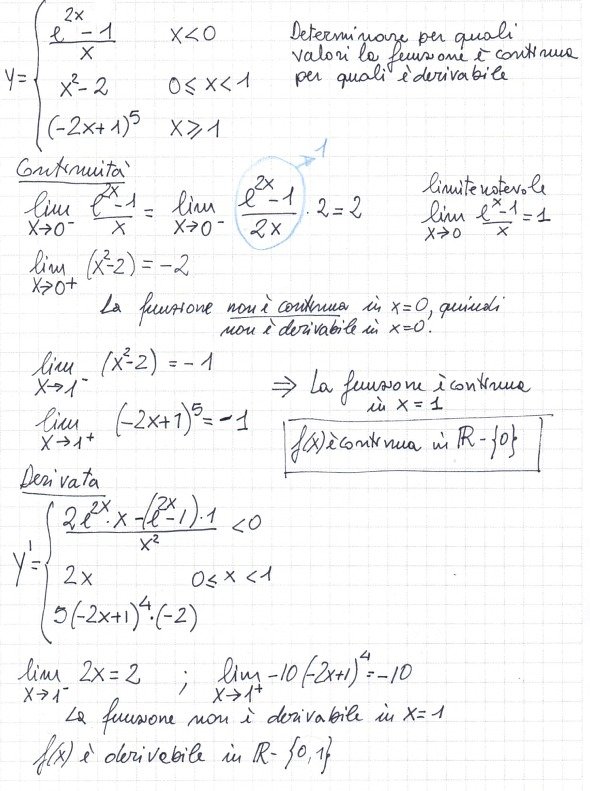 y = { (e^2x - 1)/x    x < 0
x² - 2    0 ≤ x < 1
(-2x+1)⁵    x ≥ 1
Determinare per quali
valori la funzione è continua
per quali è derivabile
Continuità
lim x→0⁻ (e^2x - 1)/x = lim x→0⁻ (e^2x - 1)/2x · 2 = 2
1
limite notevole
lim x→0 (e^x - 1)/x = 1
lim x→0⁺ (x² - 2) = -2
La funzione non è continua in x=0, quindi
non è derivabile in x=0.
lim x→1⁻ (x² - 2) = -1
lim x→1⁺ (-2x+1)⁵ = -1
⇒ La funzione è continua
in x = 1
f(x) è continua in ℝ - {0}
Derivata
y' = { (2e^2x · x - (e^2x - 1) · 1)/x²    < 0
2x    0 ≤ x < 1
5(-2x+1)⁴ · (-2)
lim x→1⁻ 2x = 2 ; lim x→1⁺ -10(-2x+1)⁴ = -10
La funzione non è derivabile in x=1
f(x) è derivabile in ℝ - {0,1}